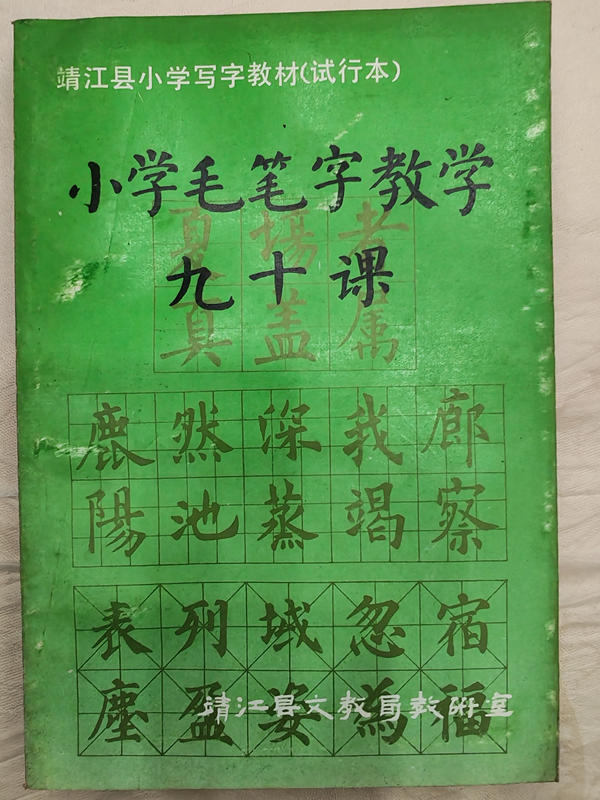 靖江县小学写字教材(试行本)
小学毛笔字教学
夏場者
九十课
真盖属
鹿然深我廊
陽池蒸竭察
表列域忽宿
塵盈姿為福
靖江县文教局教研室